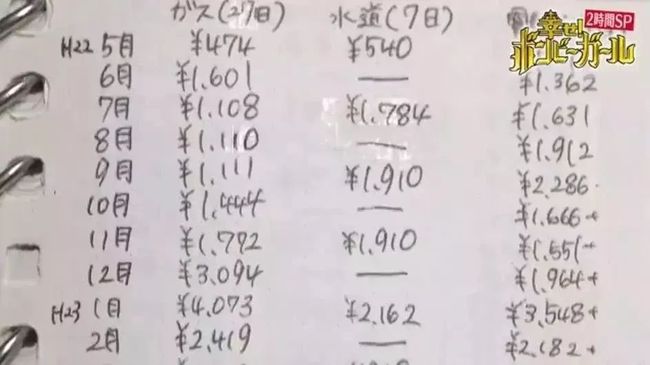 ガス(27日) 水道(7日)
2時間SP
幸せ!
ボンビーガール
H22 5月 ¥474 ¥540
6月 ¥1.601 — ¥1.362
7月 ¥1.108 ¥1.784 ¥1.631
8月 ¥1.110 — ¥1.912
9月 ¥1.111 ¥1.910 ¥2.286
10月 ¥1.444 — ¥1.666
11月 ¥1.772 ¥1.910 ¥1.551
12月 ¥3.094 — ¥1.964
H23 1月 ¥4.073 ¥2.162 ¥3.548
2月 ¥2.419 — ¥2.182